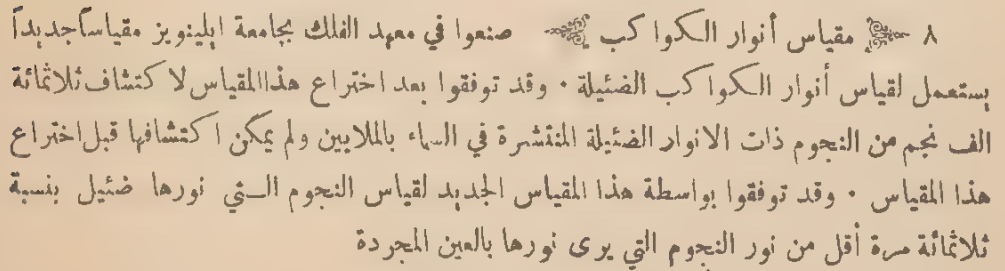 ٨ مقياس أنوار الكواكب صنعوا في معهد الفلك بجامعة ايلينويز مقياساً جديداً
يستعمل لقياس أنوار الكواكب الضئيلة · وقد توفقوا بعد اختراع هذا المقياس لاكتشاف ثلاثمائة
الف نجم من النجوم ذات الانوار الضئيلة المنتشرة في السماء بالملايين ولم يمكن اكتشافها قبل اختراع
هذا المقياس · وقد توفقوا بواسطة هذا المقياس الجديد لقياس النجوم التي نورها ضئيل بنسبة
ثلاثمائة مرة أقل من نور النجوم التي يرى نورها بالعين المجردة